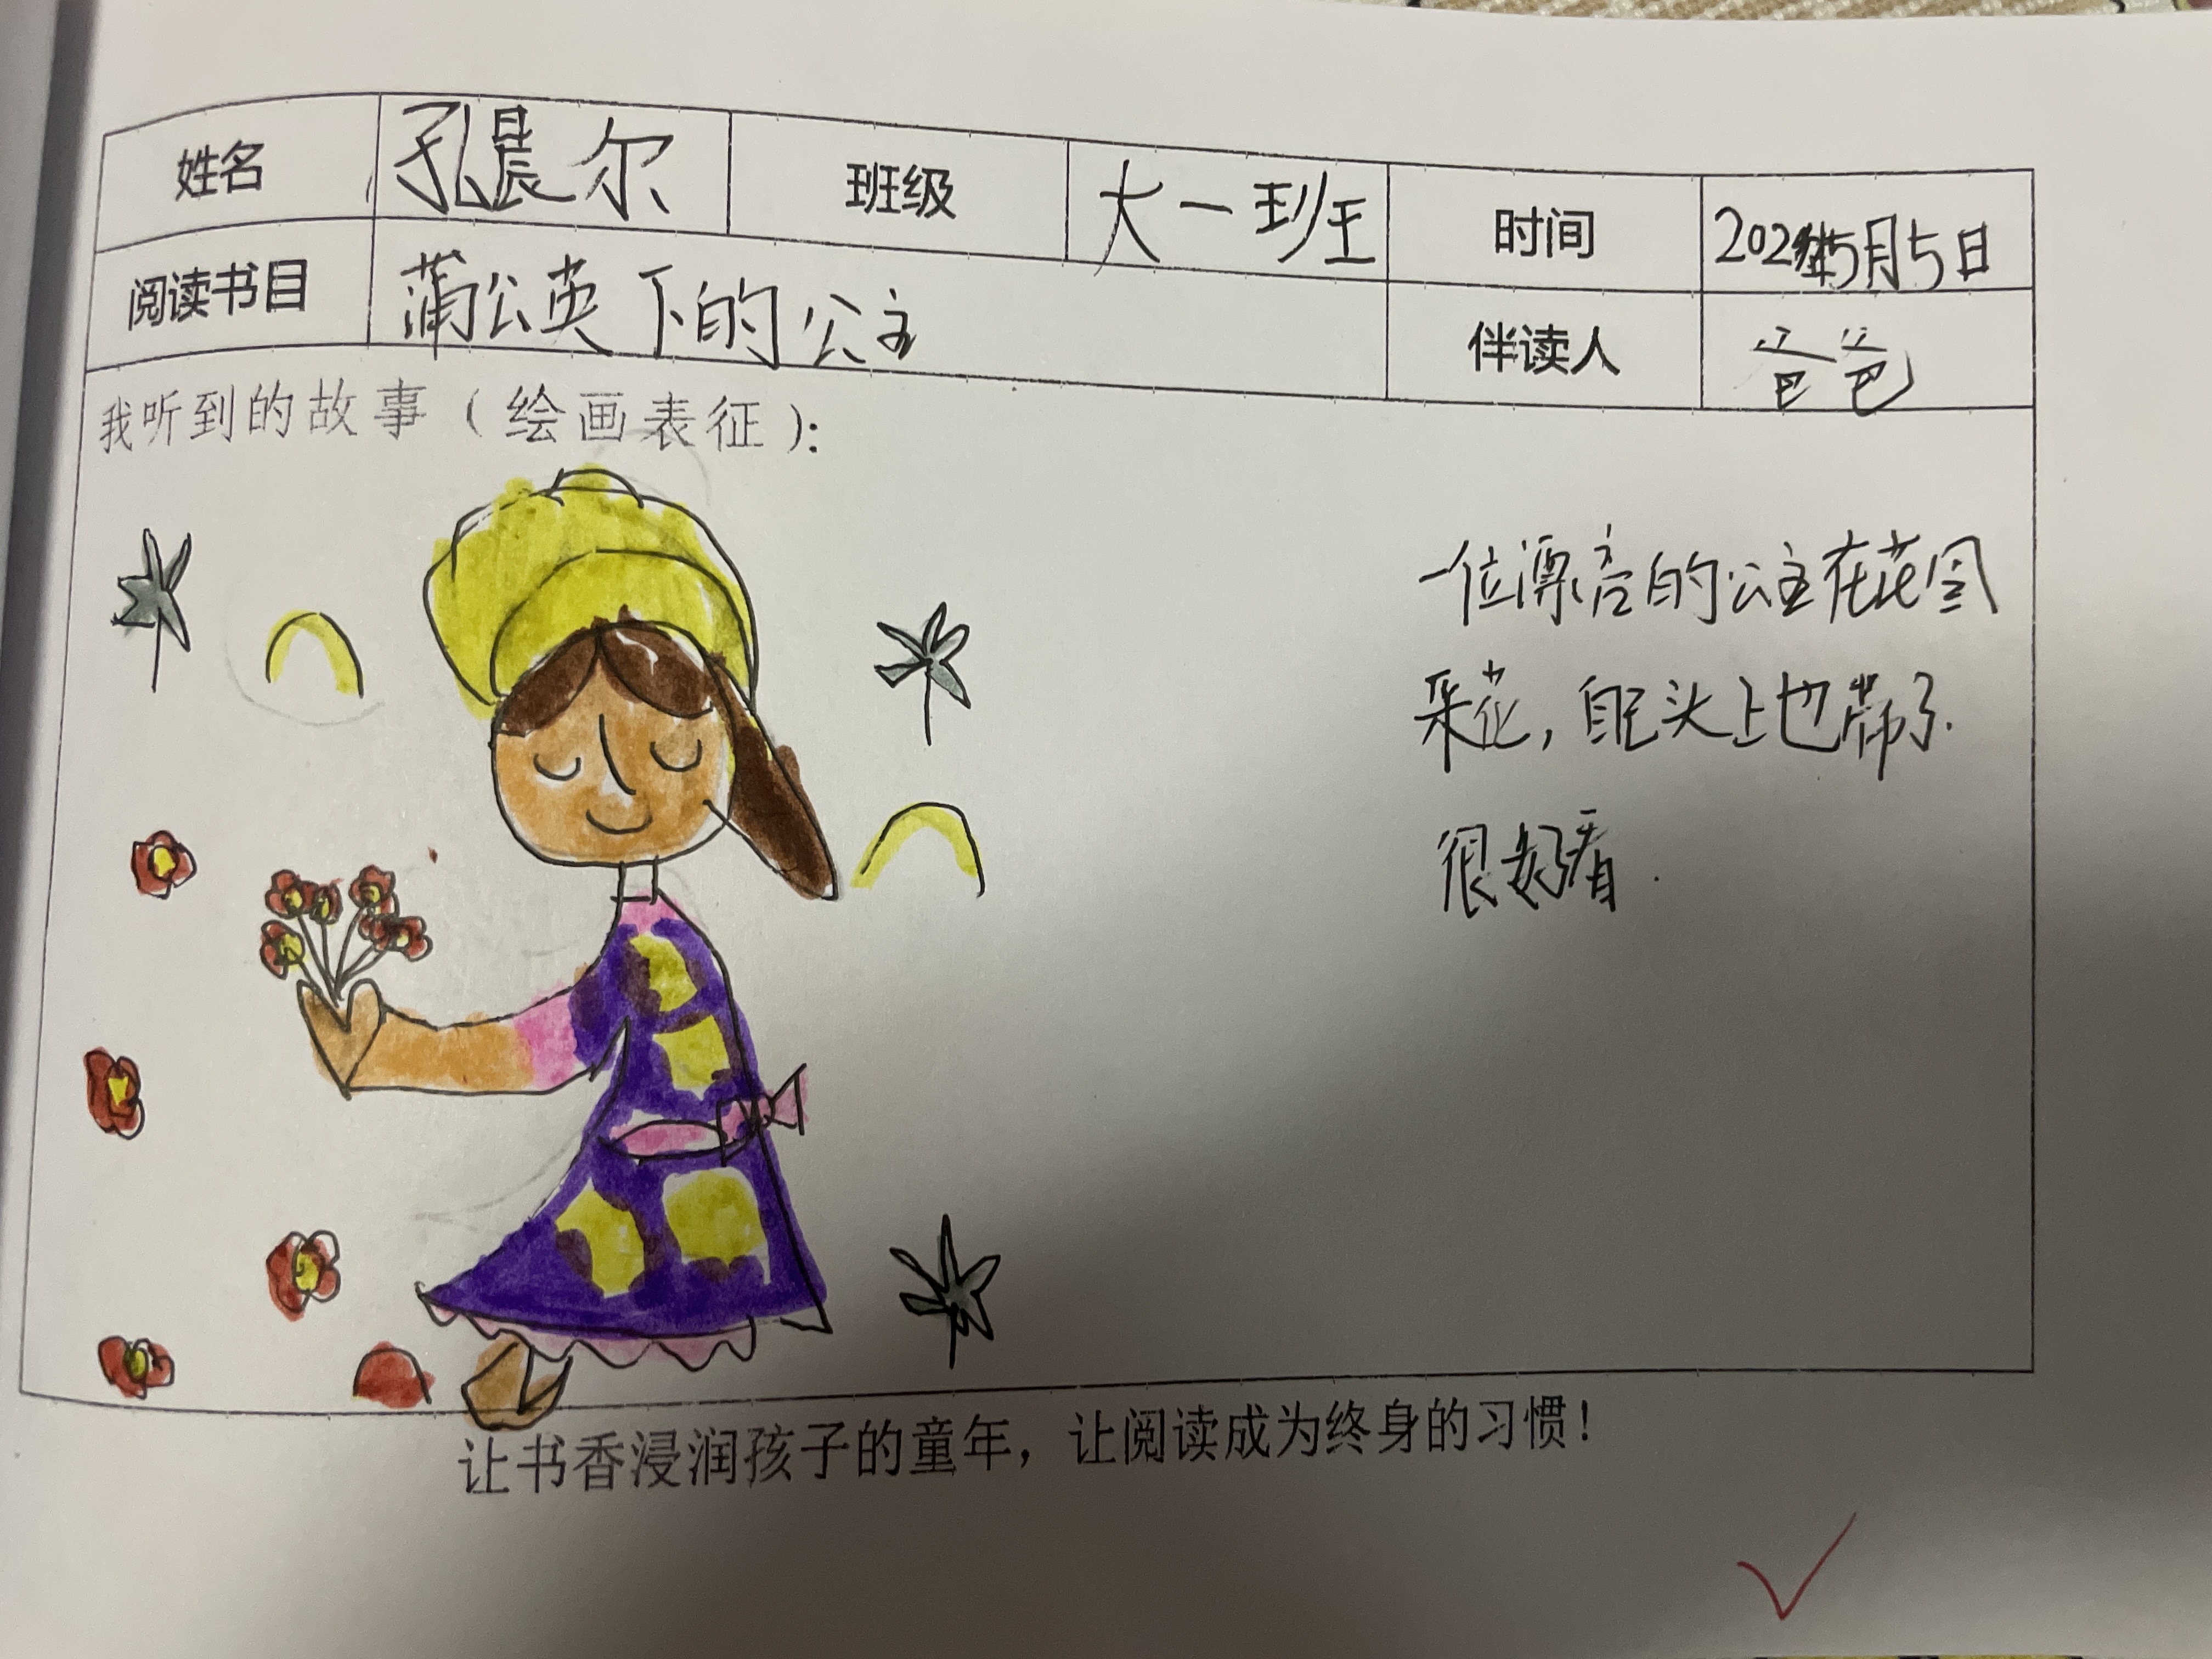 姓名 孔晨尔 班级 大一班 时间 202年5月5日
阅读书目 蒲公英下的公主 伴读人 爸爸
我听到的故事（绘画表征）：
一位漂亮的公主在花园
采花，自己头上也带了.
很好看.
让书香浸润孩子的童年，让阅读成为终身的习惯！